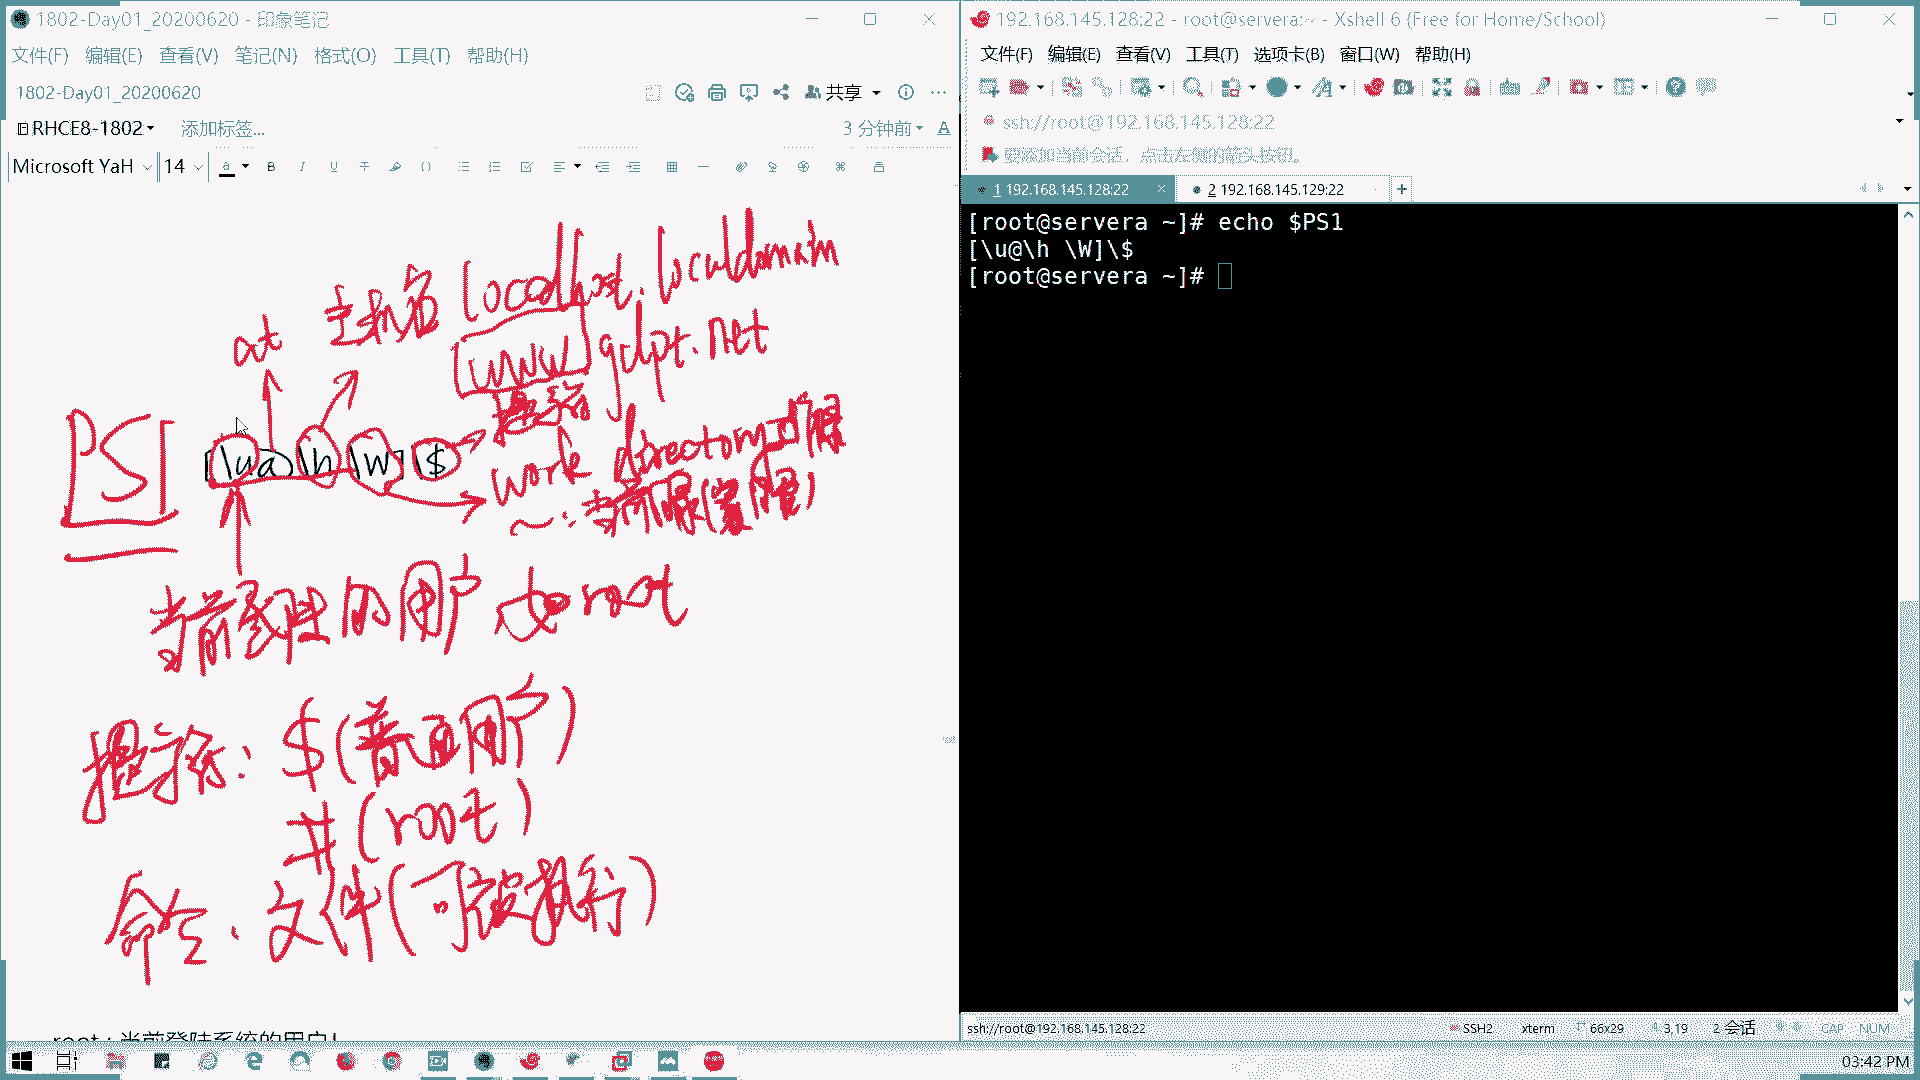 1802-Day01_20200620 - 印象笔记
文件(F) 编辑(E) 查看(V) 笔记(N) 格式(O) 工具(T) 帮助(H)
1802-Day01_20200620
共享
RHCE8-1802 添加标签...
3 分钟前
Microsoft YaH 14
at
主机名 localhost.localdomain
www gclpt.net
PS1
[\u@\h \W]\$
提示符
work directory 工作目录
~: 当前目录(家目录)
当前登陆的用户 root
提示符: $(普通用户)
#(root)
命令: 文件(可被执行)
root : 当前登陆系统的用户!
192.168.145.128:22 - root@servera:~ - Xshell 6 (Free for Home/School)
文件(F) 编辑(E) 查看(V) 工具(T) 选项卡(B) 窗口(W) 帮助(H)
ssh://root@192.168.145.128:22
要添加当前会话，点击左侧的箭头按钮。
1 192.168.145.128:22 2 192.168.145.129:22
[root@servera ~]# echo $PS1
[\u@\h \W]\$
[root@servera ~]#
ssh://root@192.168.145.128:22 SSH2 xterm 66x29 3,19 2 会话 CAP NUM
03:42 PM